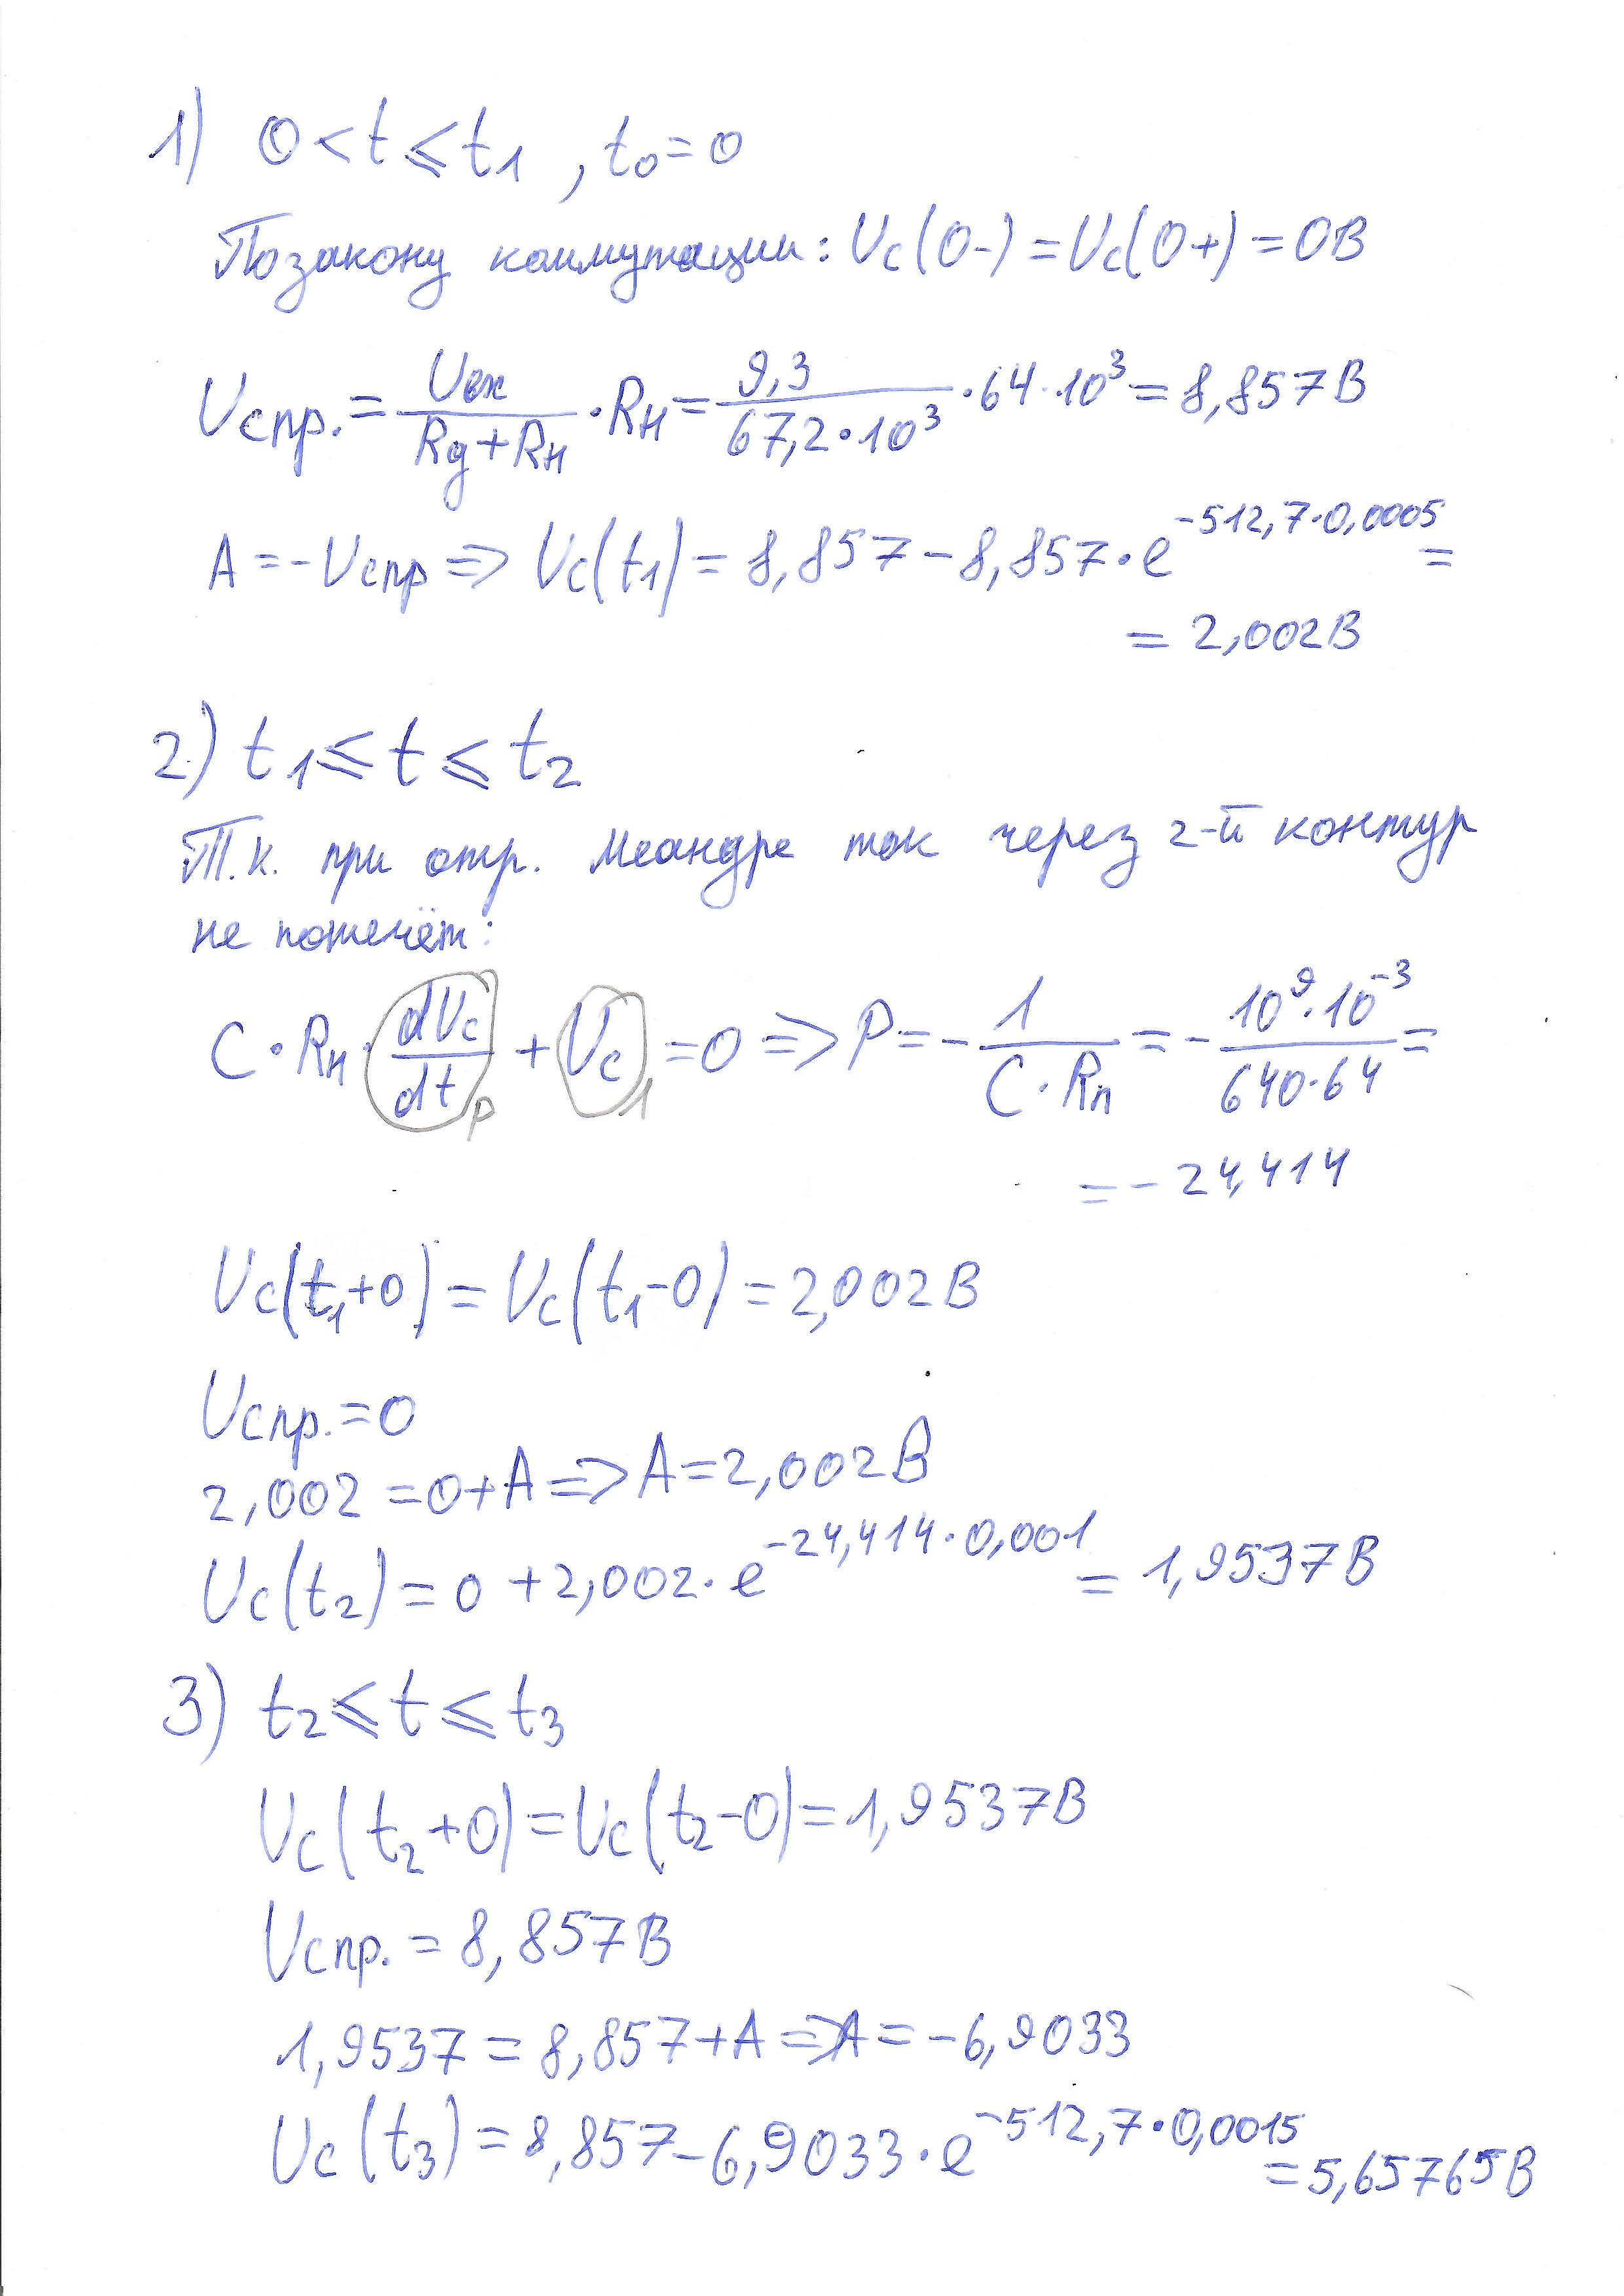 1) 0 < t ⩽ t1 , t0 = 0
По закону коммутации: Uc(0-) = Uc(0+) = 0В
Uспр. = Uвх / (Rд + Rн) · Rн = 9,3 / (67,2·10³) · 64·10³ = 8,857В
A = -Uспр => Uc(t1) = 8,857 - 8,857·e^(-512,7·0,0005) =
= 2,002В
2) t1 ⩽ t ⩽ t2
Т.к. при отр. меандре ток через 2-й контур
не потечёт:
C · Rн · dUc/dt p + Uc 1 = 0 => P = - 1 / (C · Rн) = - (10⁹·10⁻³) / (640·64) =
= - 24,414
Uc(t1+0) = Uc(t1-0) = 2,002В
Uспр. = 0
2,002 = 0 + A => A = 2,002В
Uc(t2) = 0 + 2,002·e^(-24,414·0,001) = 1,9537В
3) t2 ⩽ t ⩽ t3
Uc(t2+0) = Uc(t2-0) = 1,9537В
Uспр. = 8,857В
1,9537 = 8,857 + A => A = -6,9033
Uc(t3) = 8,857 - 6,9033·e^(-512,7·0,0015) = 5,65765В